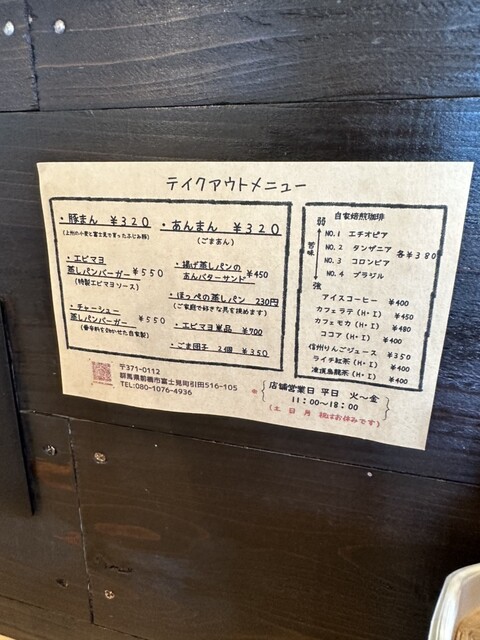 テイクアウトメニュー
・豚まん ¥320
(上州小麦と富士見で育ったふじみ豚)
・エビマヨ
蒸しパンバーガー ¥550
(特製エビマヨソース)
・チャーシュー
蒸しパンバーガー ¥550
・あんまん ¥320
(ごまあん)
・揚げ蒸しパンの
あんバターサンド ¥450
・ほっぺの蒸しパン 230円
(ご家庭で好きな具を挟めます)
・エビマヨ単品 ¥700
・ごま団子 2個 ¥350
自家焙煎珈琲
弱
苦味
強
NO.1 エチオピア
NO.2 タンザニア
NO.3 コロンビア
NO.4 ブラジル
各¥380
アイスコーヒー ¥400
カフェラテ(H・I) ¥450
カフェモカ(H・I) ¥480
ココア(H・I) ¥400
信州りんごジュース ¥350
ライチ紅茶(H・I) ¥400
凍頂烏龍茶(H・I) ¥400
〒371-0112
群馬県前橋市富士見町引田516-105
TEL:080-1076-4936
店舗営業日 平日 火～金
11:00～18:00
(土 日 月 祝はお休みです)